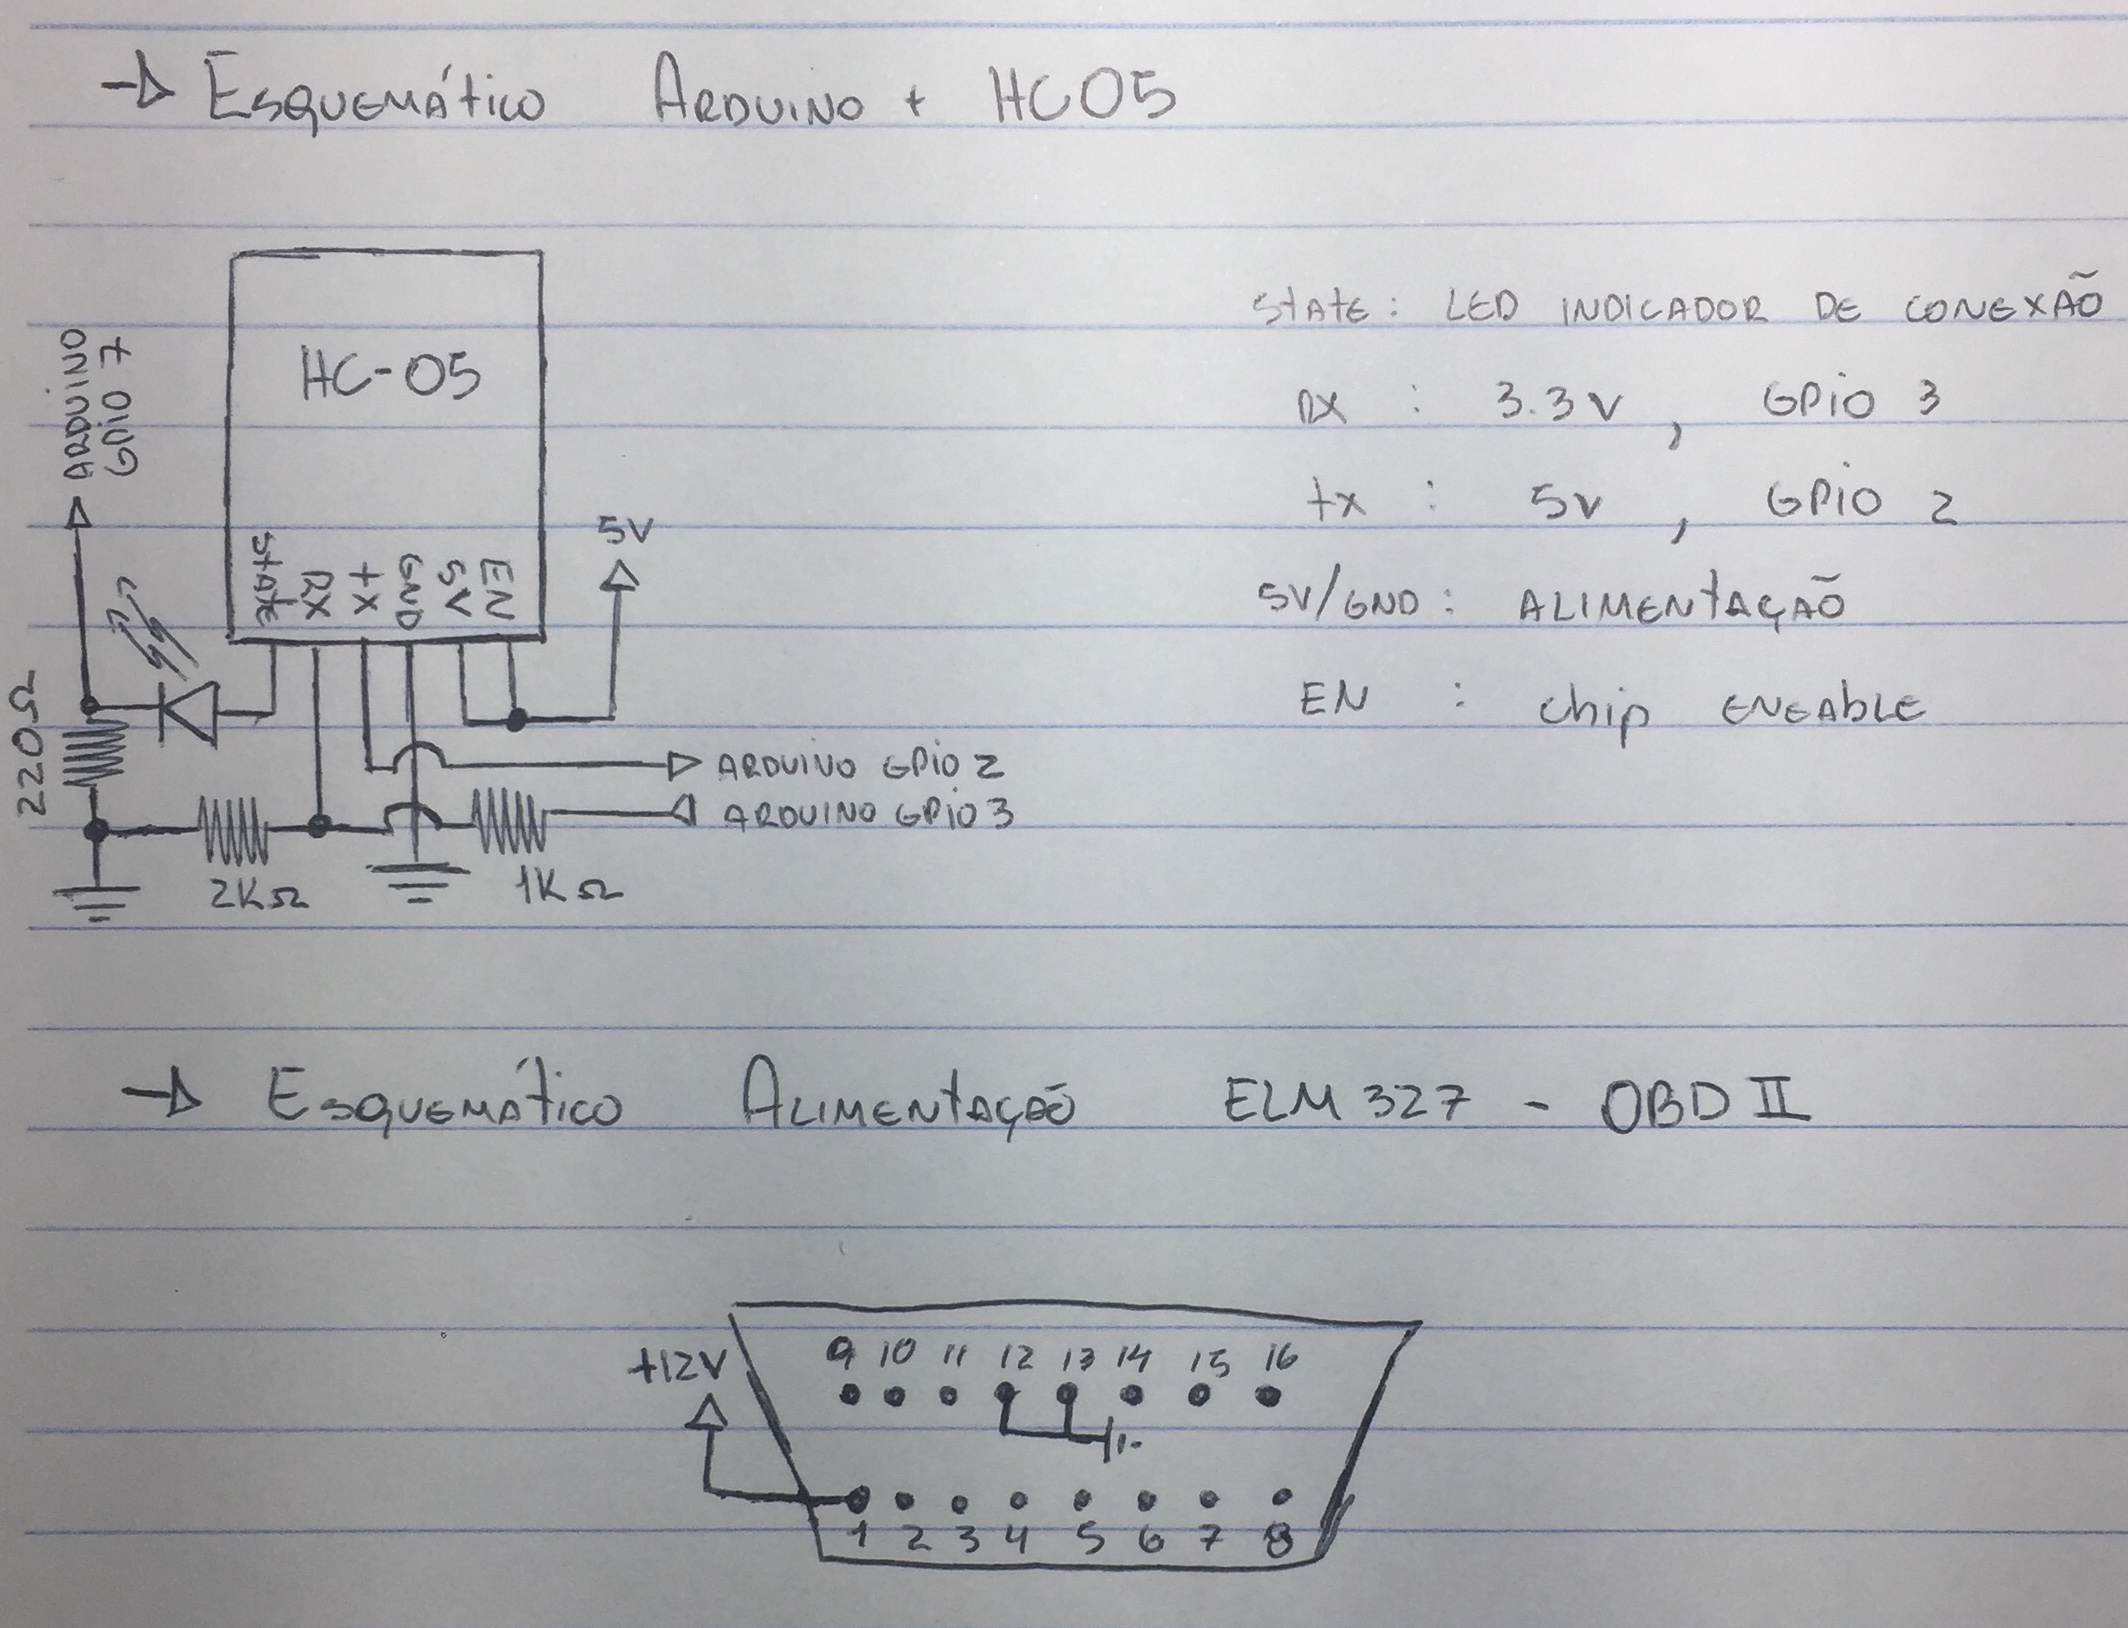 → Esquemático Arduino + HC05
HC-05
ARDUINO
GPIO 7
State
RX
tx
GND
5V
EN
5V
220Ω
ARDUINO GPIO 2
ARDUINO GPIO 3
2KΩ
1KΩ
State: LED INDICADOR DE CONEXÃO
RX : 3.3V, GPIO 3
tx : 5V, GPIO 2
5V/GND: ALIMENtAÇÃO
EN : chip ENEAbLE
→ Esquemático Alimentação ELM 327 - OBD II
+12V
9 10 11 12 13 14 15 16
1 2 3 4 5 6 7 8